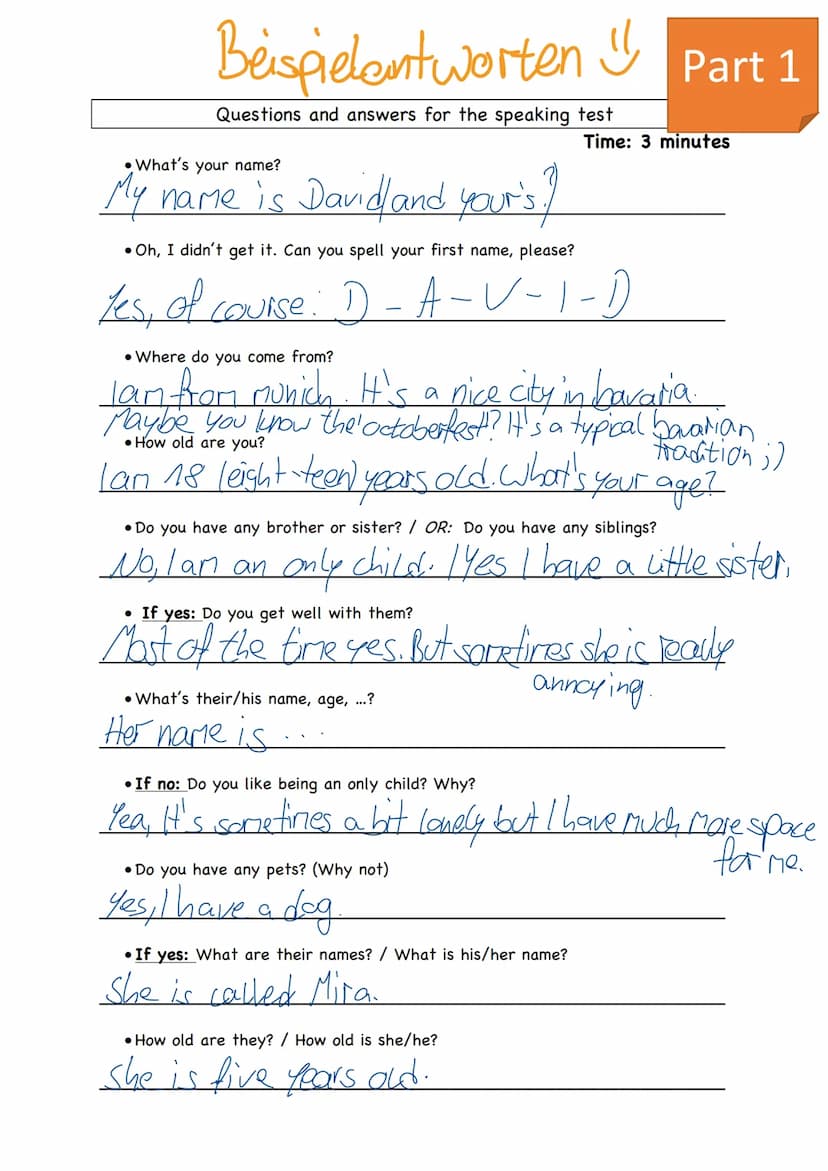 Beispielantworten
Part 1
Questions and answers for the speaking test
Time: 3 minutes
• What's your name?
My name is David/and your's?
• Oh, I didn't get it. Can you spell your first name, please?
Yes, of course: D - A - V - I - D
• Where do you come from?
I am from munich. It's a nice city in bavaria.
Maybe you know the 'octoberfest? It's a typical bavarian
tradition ;)
• How old are you?
I am 18 (eight-teen) years old. What's your age?
• Do you have any brother or sister? / OR: Do you have any siblings?
No, I am an only child. / Yes I have a little sister.
• If yes: Do you get well with them?
Most of the time yes. But sometimes she is really
annoying.
• What's their/his name, age, …?
Her name is ...
• If no: Do you like being an only child? Why?
Yea, It's sometimes a bit lonely but I have much more space
for me.
• Do you have any pets? (Why not)
Yes, I have a dog.
• If yes: What are their names? / What is his/her name?
She is called Mira.
• How old are they? / How old is she/he?
She is five years old.